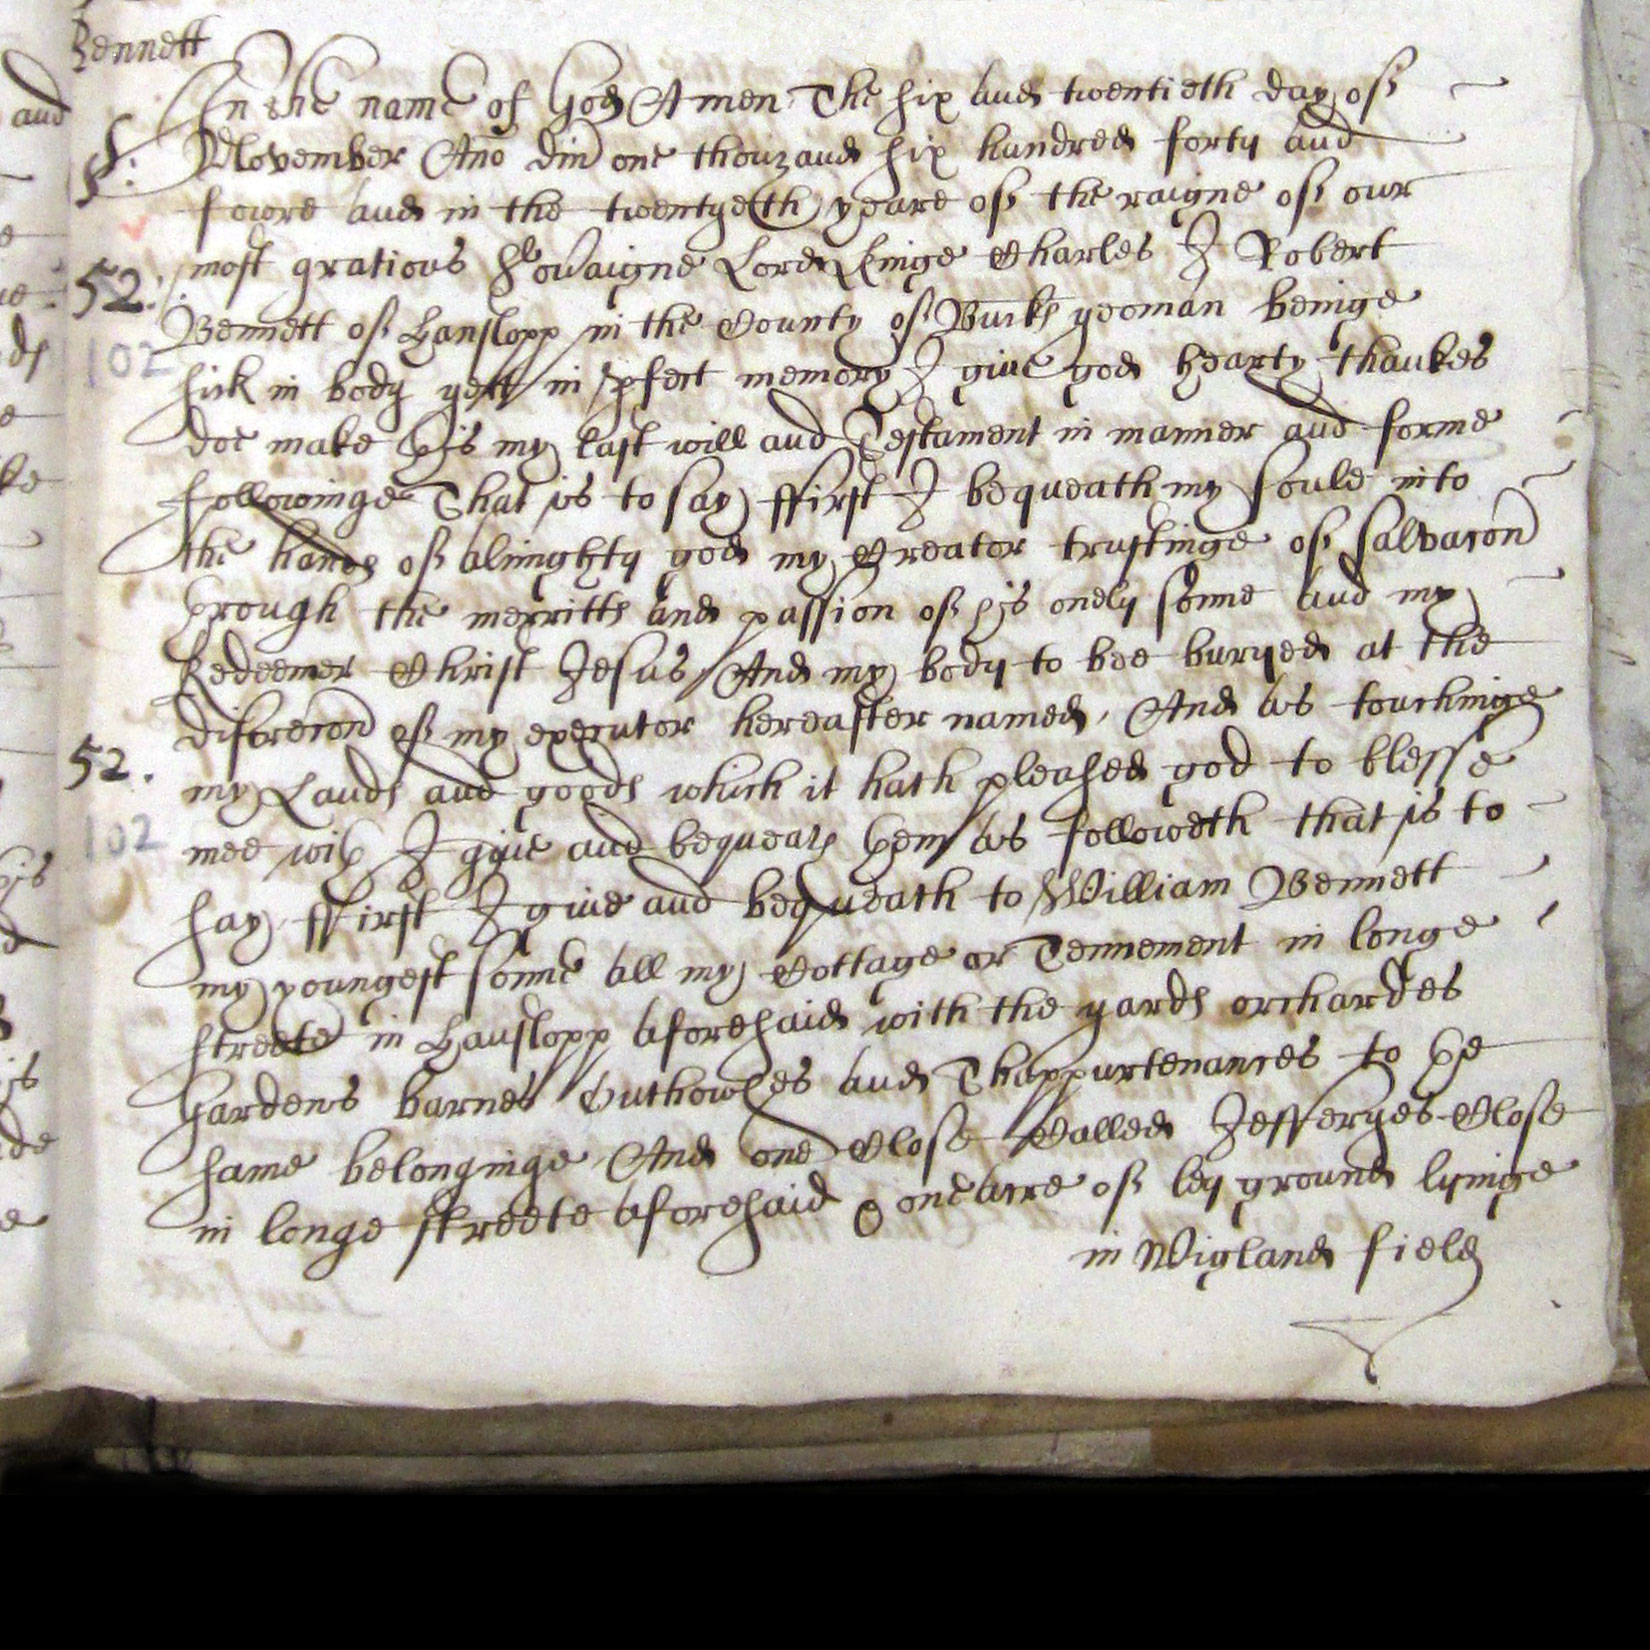 Bennett
In the name of God Amen The six and twentieth day of
November Ano dni one thouzand six hundred forty and
fowre and in the twentyeth yeare of the raigne of our
most gratious Sovaigne Lord Kinge Charles I Robert
52.
Bennett of Hanslopp in the County of Bucks yeoman beinge
102
sick in body yett in pfect memory I give god hearty thankes
doe make this my last will and Testament in manner and forme
followinge That is to say ffirst I bequeath my soule into
the hands of almighty god my Creator trustinge of salvacon
through the merritts and passion of his onely sonne and my
Redeemer Christ Jesus And my body to bee buryed at the
discrecon of my executor hereafter named, And as touchinge
52.
my Lands and goods which it hath pleased god to blesse
102
mee with I give and bequeath them as followeth that is to
say ffirst I give and bequeath to William Bennett
my youngest sonne all my Cottage or Tennement in longe
streete in Hanslopp aforesaid with the yards orchardes
Gardens barnes Outhowses and Thappurtenances to the
same belonginge And one Close Called Jefferyes Close
in longe streete aforesaid & one acre of ley ground lyinge
in Wigland field